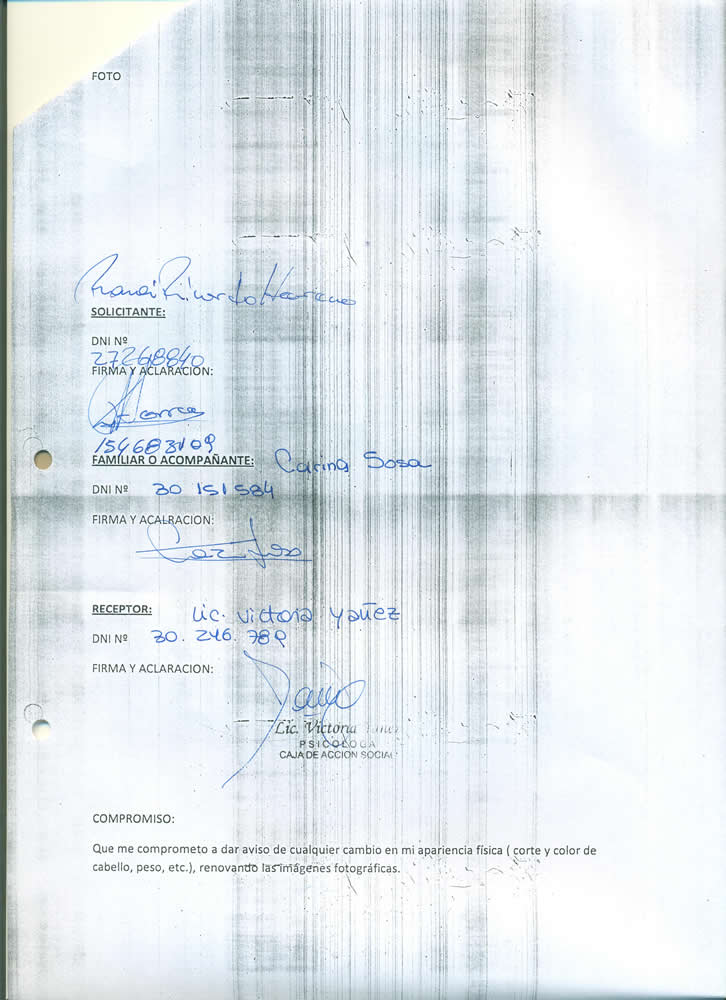 FOTO
Ricardo Mariano
SOLICITANTE:
DNI Nº
27268840
FIRMA Y ACLARACION:
154683109
FAMILIAR O ACOMPAÑANTE: Carina Sosa
DNI Nº 30 151 584
FIRMA Y ACALRACION:
RECEPTOR: Lic. Victoria Yañez
DNI Nº 30. 246. 789
FIRMA Y ACLARACION:
Lic. Victoria Yañez
PSICOLOGA
CAJA DE ACCION SOCIAL
COMPROMISO:
Que me comprometo a dar aviso de cualquier cambio en mi apariencia física ( corte y color de
cabello, peso, etc.), renovando las imágenes fotográficas.